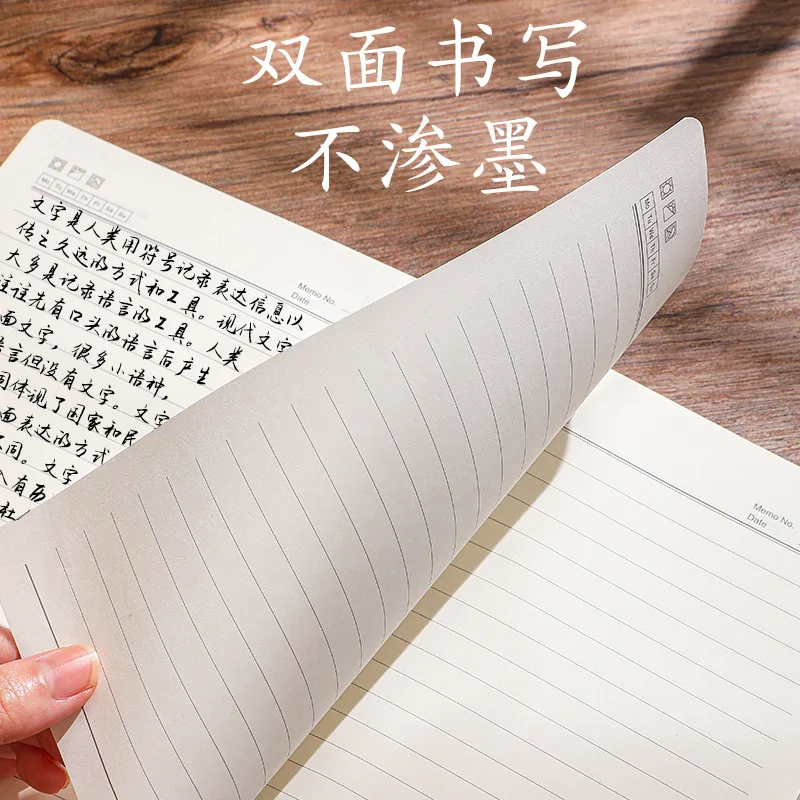 双面书写
不渗墨
Mo Tu We Th Fr Sa Su
Memo No.
Date
文字是人类用符号记录表达信息以
传之久远的方式和工具。现代文字
大多是记录语言的工具。人类
往往先有口头的语言后产生
面文字，很多小语种，
语言但没有文字。文字
同体现了国家和民
面表达的方式
不同。文字
人有历
社
Mo Tu We Th Fr Sa Su
Memo No.
Date